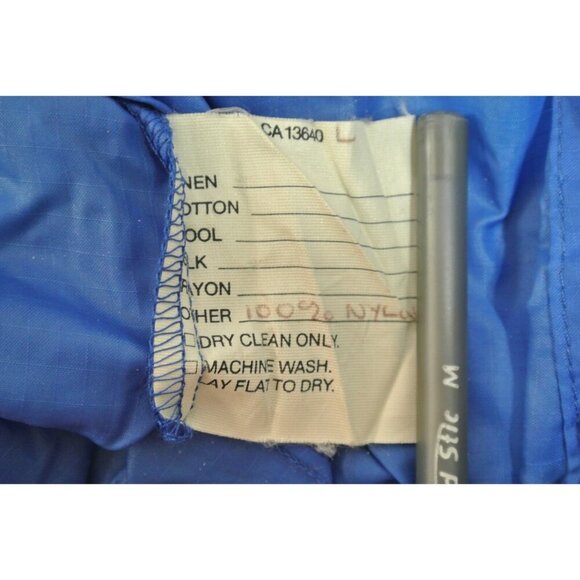 CA 13640 L
NEN
OTTON
OOL
LK
YON
OTHER 100% NYLON
DRY CLEAN ONLY.
MACHINE WASH.
AY FLAT TO DRY.
d Stic M